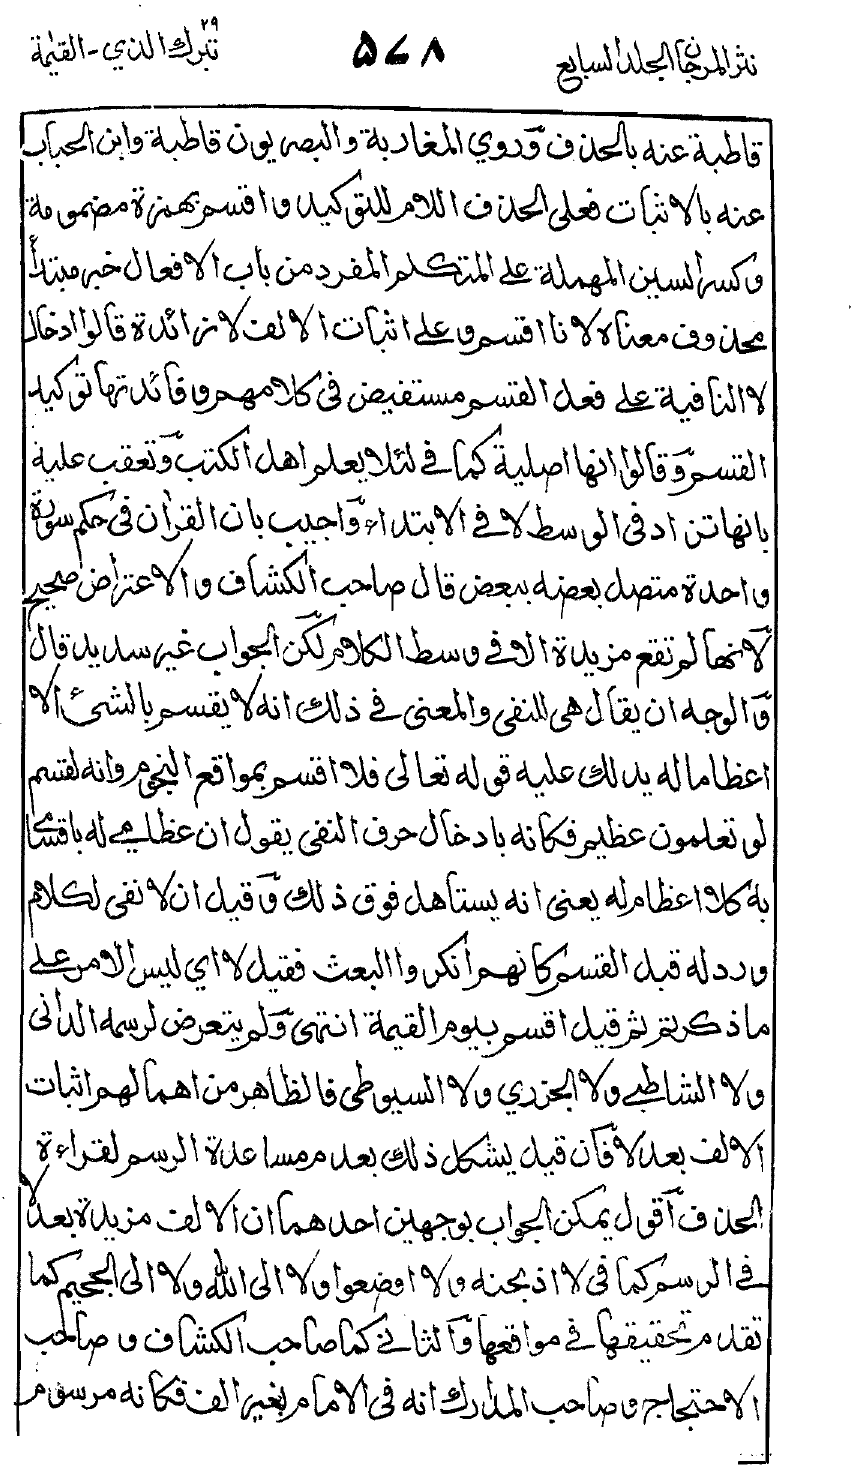 نثر المرجان الجلد السابع ٥٧٨ تبرك الذي ٢٩ - القيٰمة
قاطبة عنه بالحذف وروي المغاربة والبصريون قاطبة وابن الحباب
عنه بالاثبات فعلى الحذف اللام للتوكيد واقسم بهمزة مضمومة
وكسر السين المهملة على المتكلم المفرد من باب الافعال خبر مبتدأ
محذوف معناه لانا اقسم وعلى اثبات الالف لا زائدة قالوا ادخال
لا النافية على فعل القسم مستفيض في كلامهم وفائدتها توكيد
القسم وقالوا انها اصلية كما في لئلا يعلم اهل الكتب وتعقب عليه
بانها تزاد في الوسط لا في الابتداء واجيب بان القرأن في حكم سورة
واحدة متصل بعضه ببعض قال صاحب الكشاف والاعتراض صحيح
لانها لم تقع مزيدة الا في وسط الكلام لكن الجواب غير سديد قال
والوجه ان يقال هي للنفي والمعنى في ذلك انه لا يقسم بالشئ الا
اعظاما له يدلك عليه قوله تعالى فلا اقسم بمواقع النجوم وانه لقسم
لو تعلمون عظيم فكانه بادخال حرف النفي يقول ان عظامي له باقسامي
به كلا اعظام له يعني انه يستاهل فوق ذلك وقيل ان لا نفي لكلام
ورد له قبل القسم كانهم انكروا البعث فقيل لا اي ليس الامر على
ما ذكرتم ثم قيل اقسم بيوم القيمة انتهى ولم يتعرض لرسمه الداني
ولا الشاطبي ولا الجزري ولا السيوطي فالظاهر من اهمالهم اثبات
الالف بعد لا فان قيل يشكل ذلك بعدم مساعدة الرسم لقراءة
الحذف اقول يمكن الجواب بوجهين احدهما ان الالف مزيدة بعد لا
في الرسم كما في لا اذبحنه ولا اوضعوا ولا الى الله ولا الى الجحيم كما
تقدم تحقيقها في مواقعها والثاني كما صاحب الكشاف وصاحب
الاحتجاج وصاحب المدارك انه في الامام بغير الف فكانه مرسوم